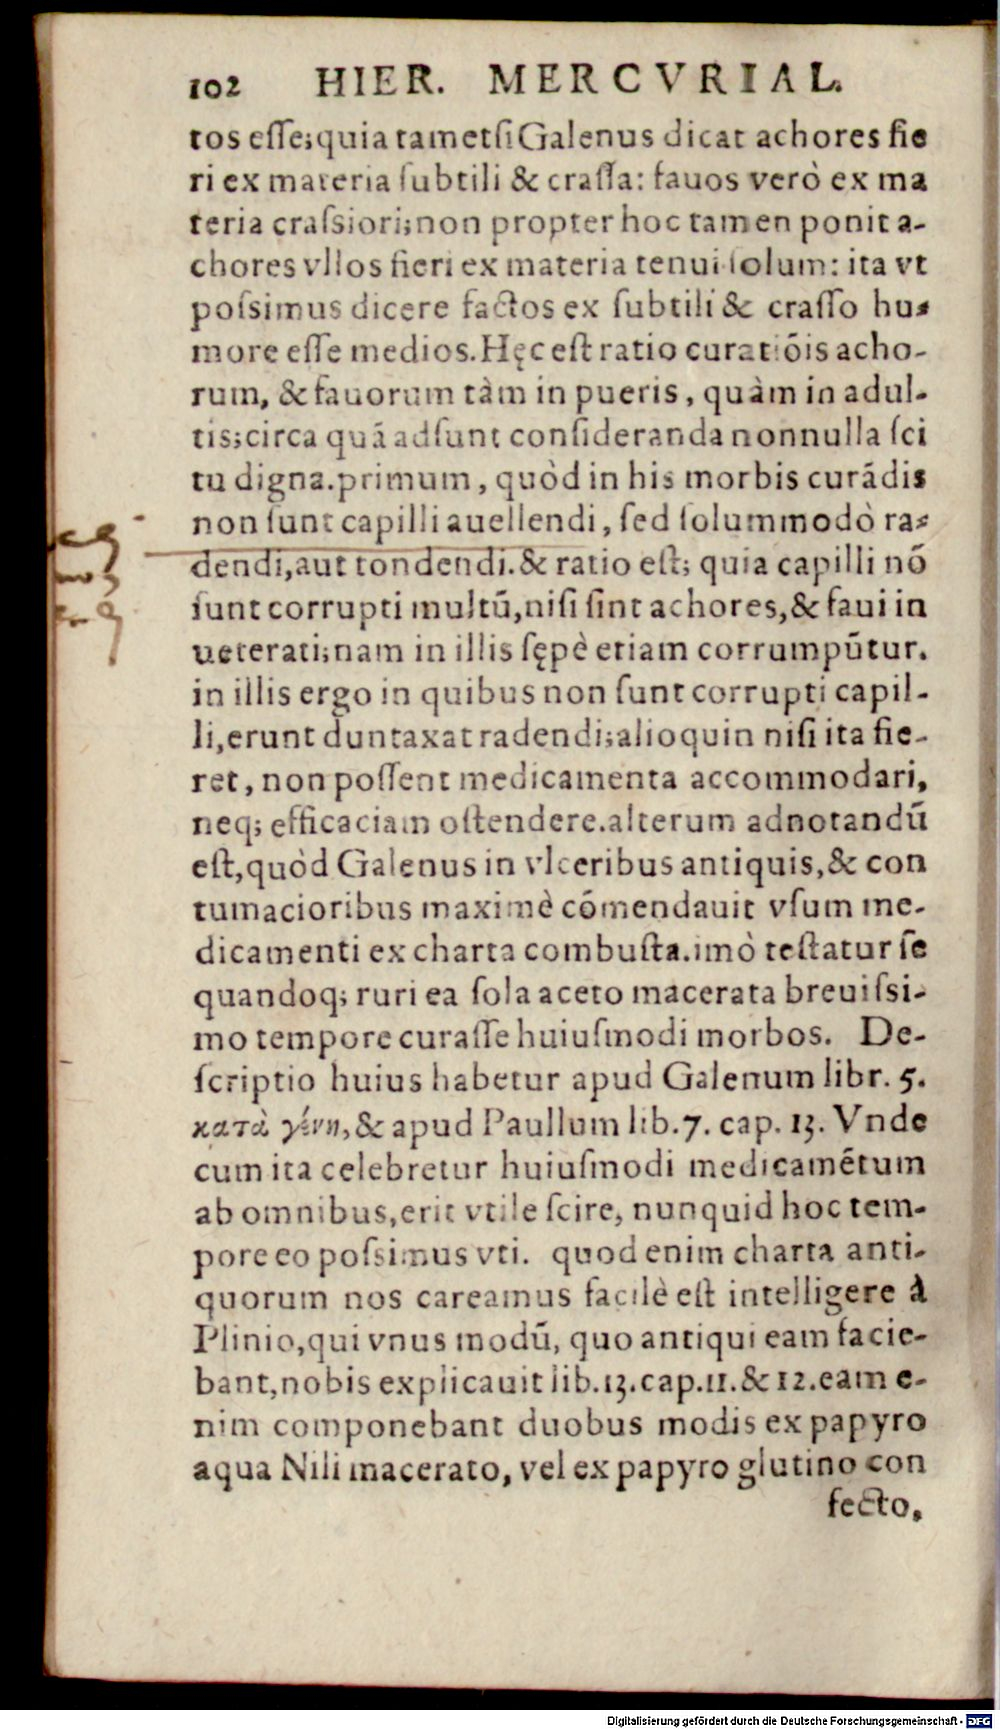 102 HIER. MERCVRIAL.
tos eſſe; quia tametſi Galenus dicat achores fie
ri ex materia ſubtili & craſſa: fauos verò ex ma
teria craſsiori; non propter hoc tamen ponit a-
chores vllos fieri ex materia tenui ſolum: ita vt
poſsimus dicere factos ex ſubtili & craſſo hu-
more eſſe medios. Hęc eſt ratio curatiõis acho-
rum, & fauorum tàm in pueris, quàm in adul-
tis; circa quã adſunt conſideranda nonnulla ſci
tu digna. primum, quòd in his morbis curãdis
non ſunt capilli auellendi, ſed ſolummodò ra-
dendi, aut tondendi. & ratio eſt; quia capilli nõ
ſunt corrupti multũ, niſi ſint achores, & faui in
ueterati; nam in illis ſępè etiam corrumpũtur.
in illis ergo in quibus non ſunt corrupti capil-
li, erunt duntaxat radendi; alioquin niſi ita fie-
ret, non poſſent medicamenta accommodari,
neq; efficaciam oſtendere. alterum adnotandũ
eſt, quòd Galenus in vlceribus antiquis, & con
tumacioribus maximè cõmendauit vſum me-
dicamenti ex charta combuſta. imò teſtatur ſe
quandoq; ruri ea ſola aceto macerata breuiſsi-
mo tempore curaſſe huiuſmodi morbos. De-
ſcriptio huius habetur apud Galenum libr. 5.
κατὰ γένη, & apud Paullum lib. 7. cap. 13. Vnde
cum ita celebretur huiuſmodi medicamẽtum
ab omnibus, erit vtile ſcire, nunquid hoc tem-
pore eo poſsimus vti. quod enim charta anti-
quorum nos careamus facilè eſt intelligere à
Plinio, qui vnus modũ, quo antiqui eam facie-
bant, nobis explicauit lib. 13. cap. 11. & 12. eam e-
nim componebant duobus modis ex papyro
aqua Nili macerato, vel ex papyro glutino con
fecto,
Digitalisierung gefördert durch die Deutsche Forschungsgemeinschaft - DFG